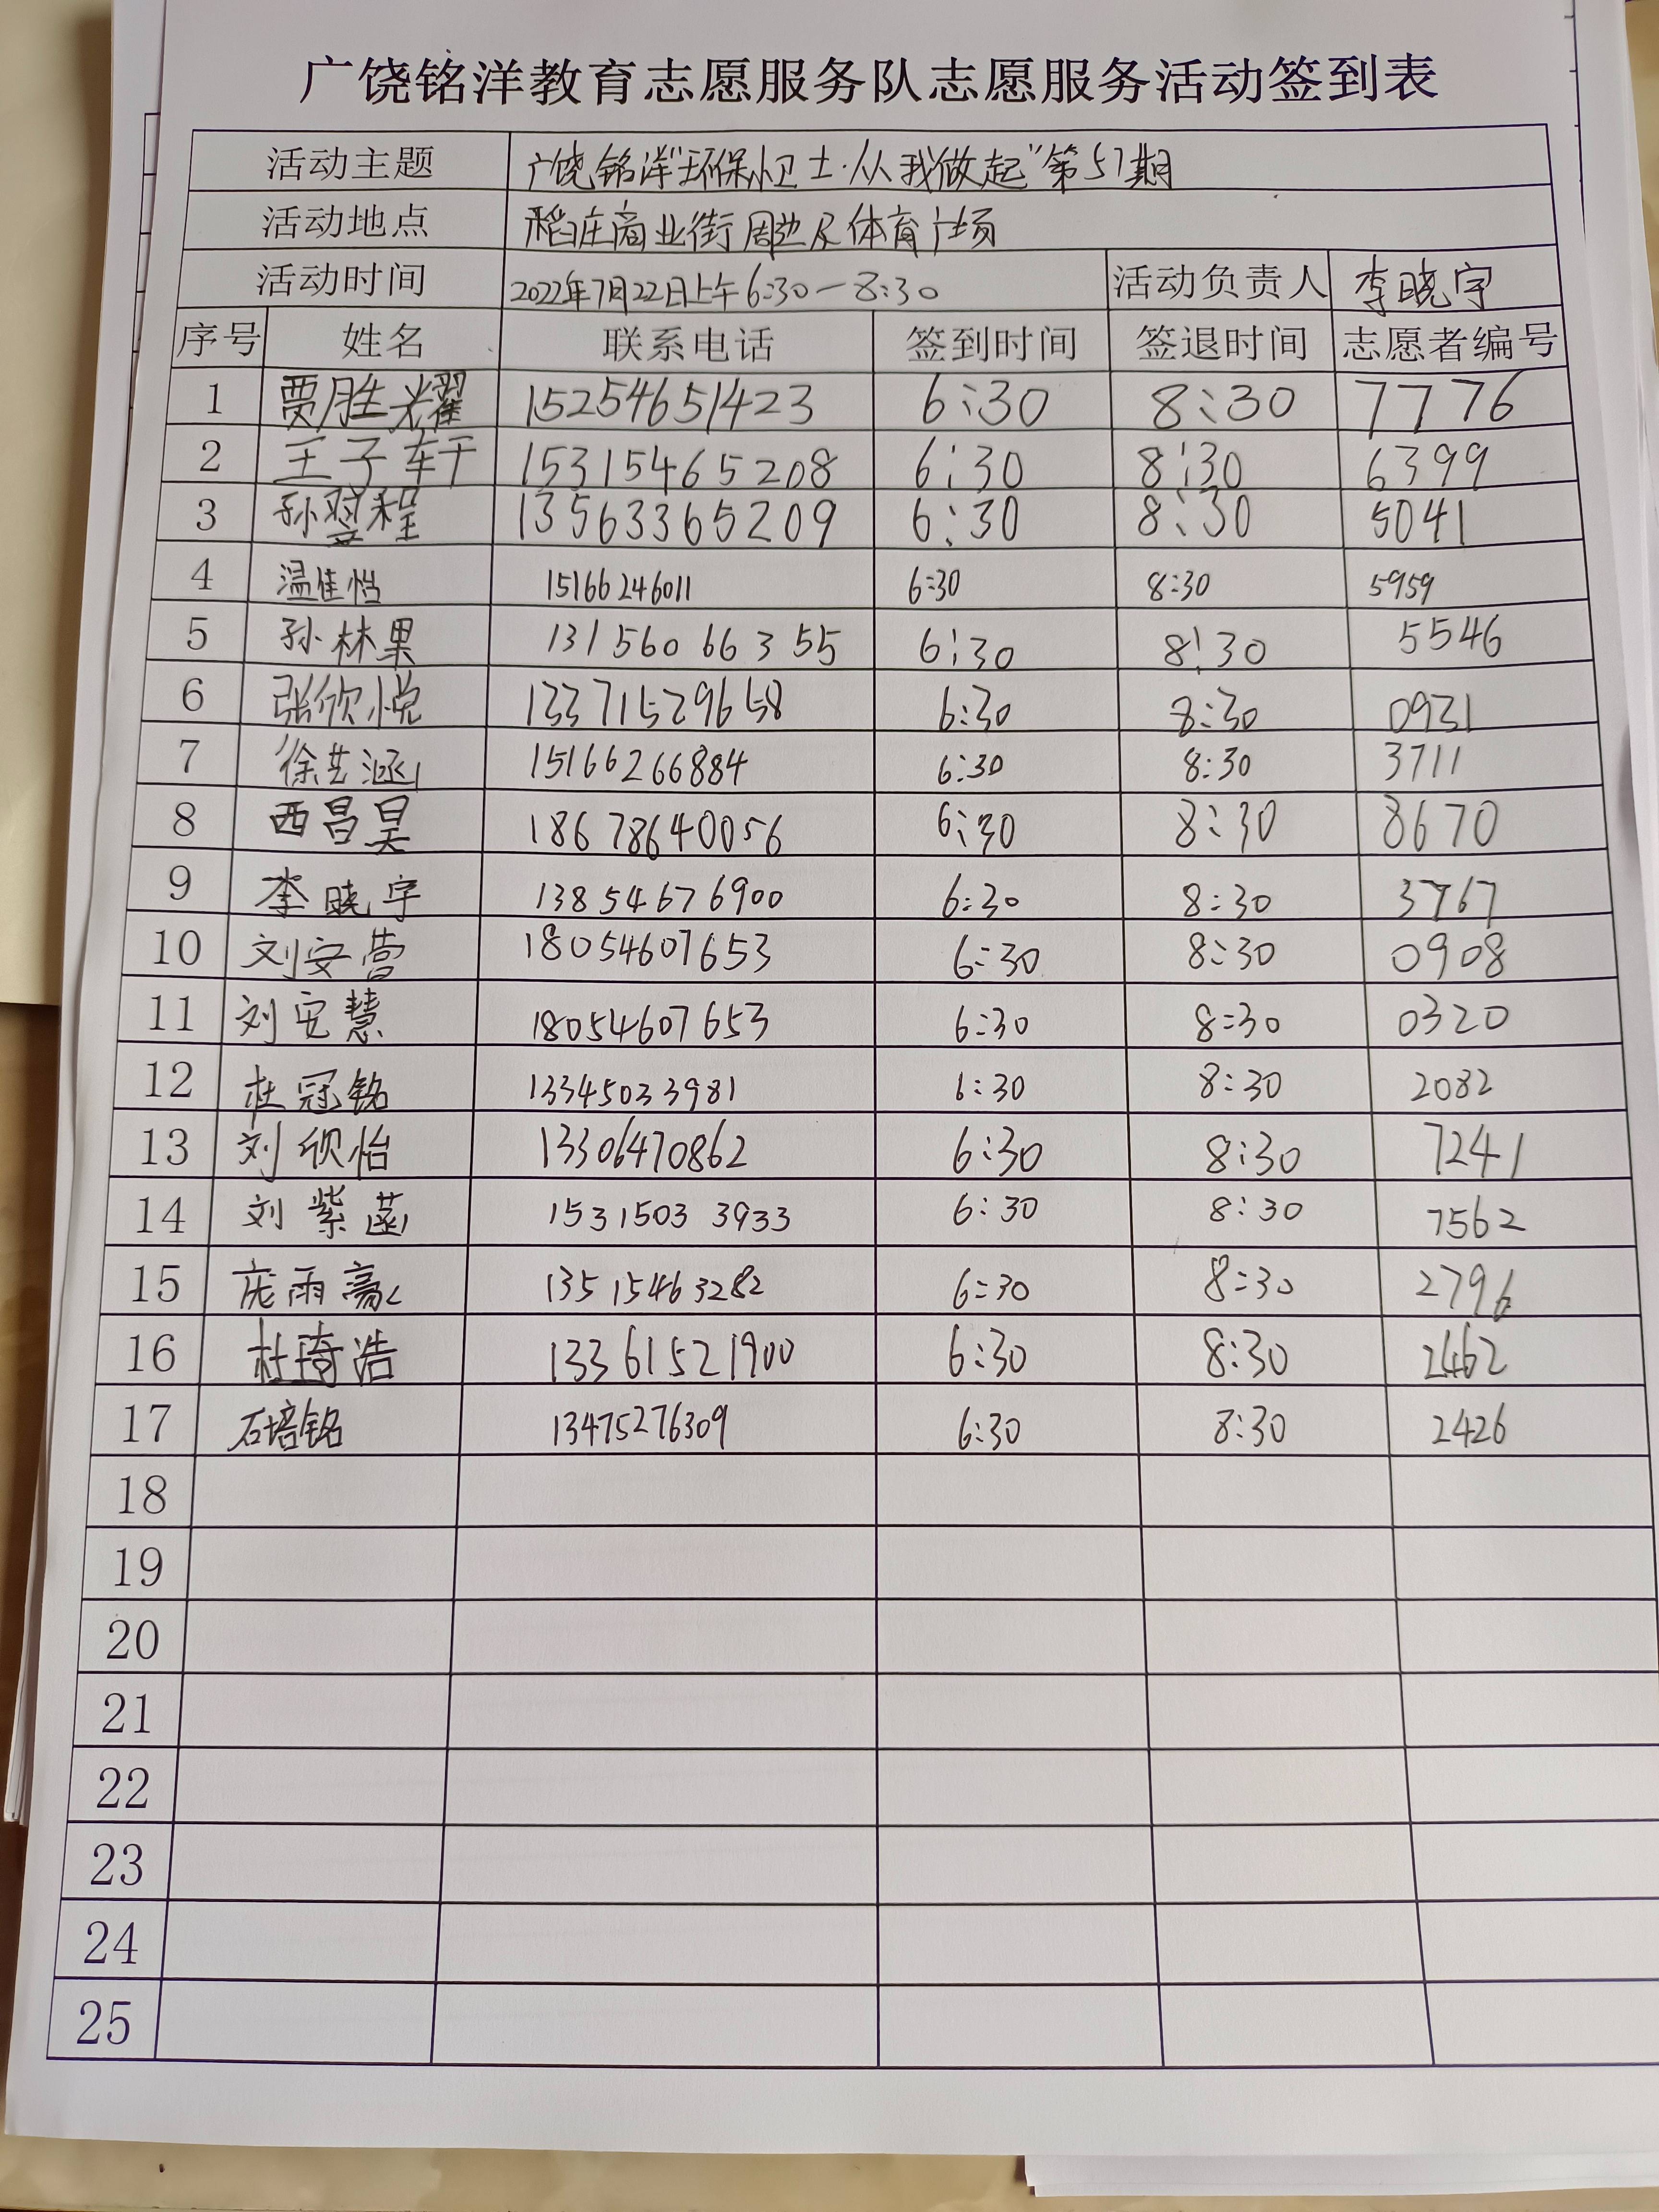 广饶铭洋教育志愿服务队志愿服务活动签到表
活动主题 广饶铭洋"环保小卫士·从我做起"第57期
活动地点 稻庄商业街周边及体育广场
活动时间 2022年7月22日上午6:30—8:30 活动负责人 李晓宇
序号 姓名 联系电话 签到时间 签退时间 志愿者编号
1 贾胜耀 15254651423 6:30 8:30 7776
2 王子轩 15315465208 6:30 8:30 6399
3 孙翌程 13563365209 6:30 8:30 5041
4 温佳恺 15166246011 6:30 8:30 5959
5 孙林果 13156066355 6:30 8:30 5546
6 张欣悦 13371529658 6:30 8:30 0931
7 徐艺涵 15166266884 6:30 8:30 3711
8 西昌昊 18678640056 6:30 8:30 8670
9 李晓宇 13854676900 6:30 8:30 3767
10 刘安营 18054607653 6:30 8:30 0908
11 刘安慧 18054607653 6:30 8:30 0320
12 杜冠铭 13345033981 6:30 8:30 2082
13 刘欣怡 13306470862 6:30 8:30 7241
14 刘紫菡 15315033933 6:30 8:30 7562
15 庞雨 13515463282 6:30 8:30 2796
16 杜琦浩 13361521900 6:30 8:30 2462
17 石培铭 13475276309 6:30 8:30 2426
18
19
20
21
22
23
24
25